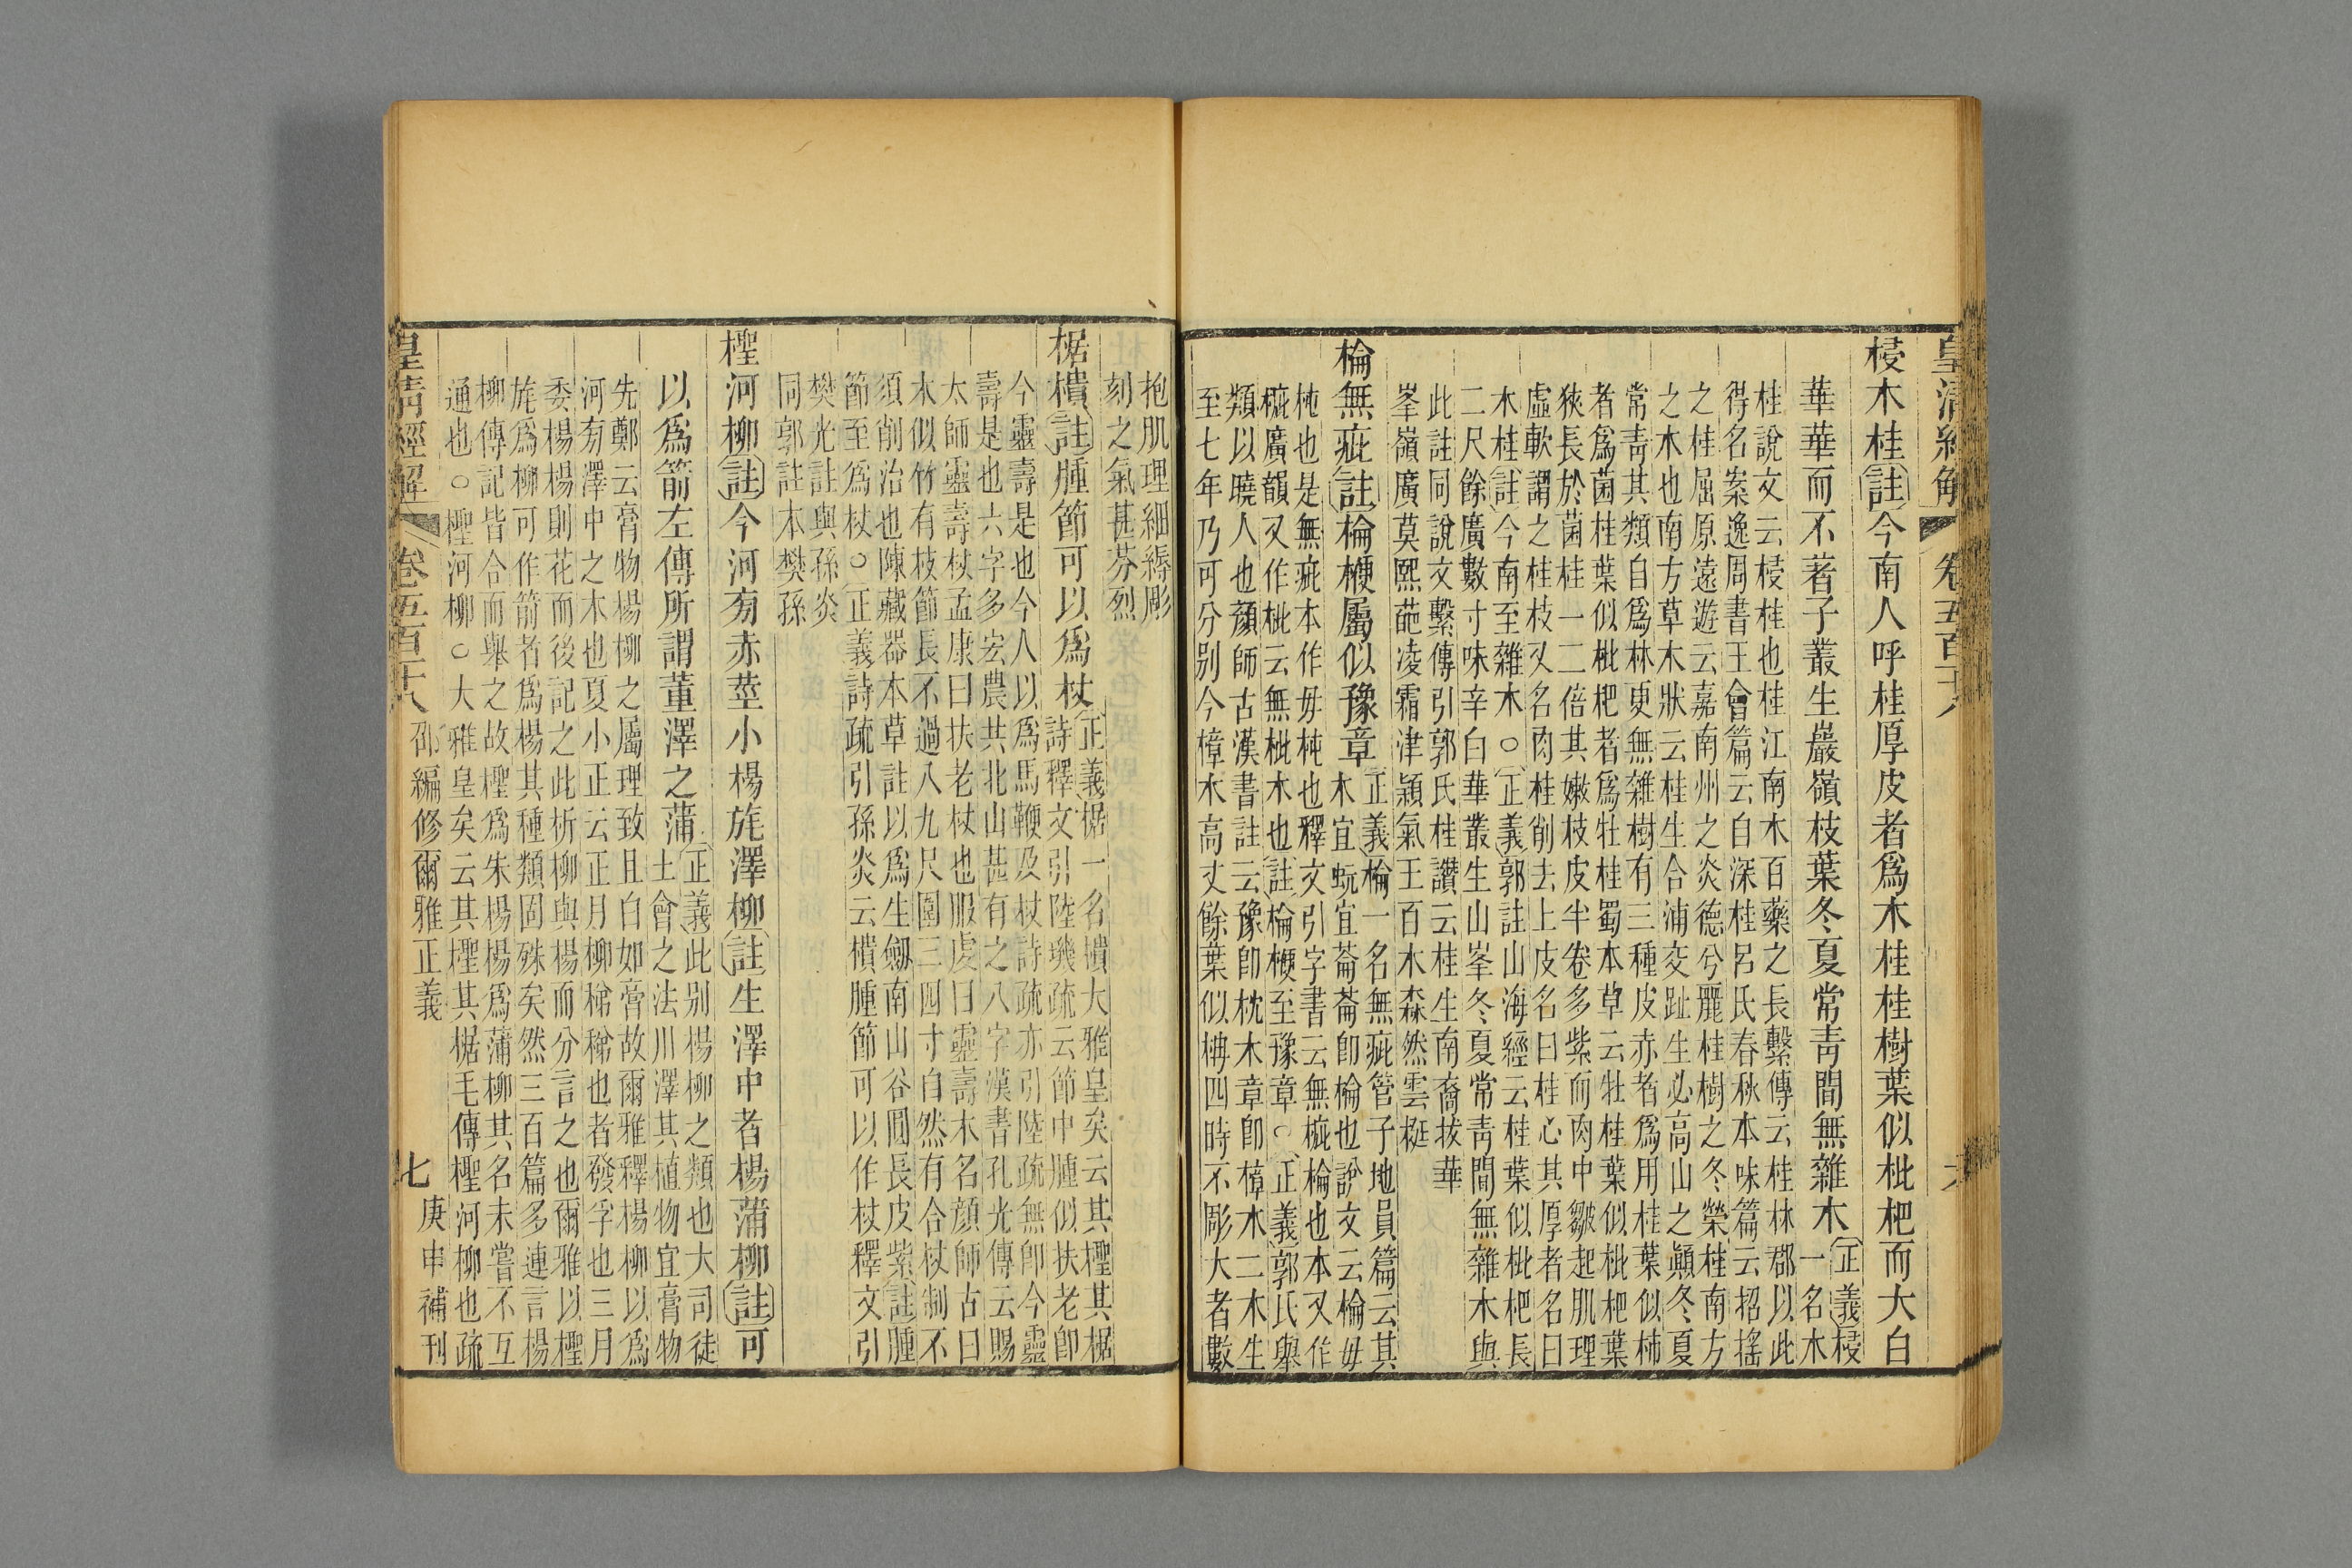 皇清經解 卷五百十八 六
梫木桂註今南人呼桂厚皮者爲木桂桂樹葉似枇杷而大白
華華而不著子叢生巖嶺枝葉冬夏常靑間無雜木
正義梫
一名木
桂說文云梫桂也桂江南木百藥之長繫傳云桂林郡以此
得名案逸周書王會篇云自深桂呂氏春秋本味篇云招搖
之桂屈原遠遊云嘉南州之炎德兮麗桂樹之冬榮桂南方
之木也南方草木狀云桂生合浦交趾生必高山之顚冬夏
常靑其類自爲林更無雜樹有三種皮赤者爲用桂葉似柿
者爲菌桂葉似枇杷者爲牡桂蜀本草云牡桂葉似枇杷葉
狹長於菌桂一二倍其嫩枝皮半卷多紫而肉中皺起肌理
虛軟謂之桂枝又名肉桂削去上皮名曰桂心其厚者名曰
木桂註今南至雜木○正義郭註山海經云桂葉似枇杷長
二尺餘廣數寸味辛白華叢生山峯冬夏常靑間無雜木與
此註同說文繫傳引郭氏桂讚云桂生南裔拔華
峯嶺廣莫熙葩凌霜津穎氣王百木森然雲挺
棆無疵註棆楩屬似豫章
正義棆一名無疵管子地員篇云其
木宜蚖宜菕菕卽棆也說文云棆毋
杶也是無疵本作毋杶也釋文引字書云無櫠棆也本又作
櫠廣韻又作枇云無枇木也註棆楩至豫章○正義郭氏舉
類以曉人也顏師古漢書註云豫卽枕木章卽樟木二木生
至七年乃可分別今樟木高丈餘葉似枏四時不彫大者數
抱肌理細縟彫
刻之氣甚芬烈
椐樻註腫節可以爲杖
正義椐一名樻大雅皇矣云其檉其椐
詩釋文引陸璣疏云節中腫似扶老卽
今靈壽是也今人以爲馬鞭及杖詩疏亦引陸疏無卽今靈
壽是也六字多宏農共北山甚有之八字漢書孔光傳云賜
太師靈壽杖孟康曰扶老杖也服虔曰靈壽木名顏師古曰
木似竹有枝節長不過八九尺圍三四寸自然有合杖制不
須削治也陳藏器本草註以爲生劔南山谷圓長皮紫註腫
節至爲杖○正義詩疏引孫炎云樻腫節可以作杖釋文引
樊光註與孫炎
同郭註本樊孫
檉河柳註今河旁赤莖小楊旄澤柳註生澤中者楊蒲柳註可
以爲箭左傳所謂董澤之蒲
正義此别楊柳之類也大司徒
土會之法川澤其植物宜膏物
先鄭云膏物楊柳之屬理致且白如膏故爾雅釋楊柳以爲
河旁澤中之木也夏小正云正月柳稊稊也者發孚也三月
委楊楊則花而後記之此析柳與楊而分言之也爾雅以檉
旄爲柳可作箭者爲楊其種類固殊矣然三百篇多連言楊
柳傳記皆合而舉之故檉爲朱楊楊爲蒲柳其名未嘗不互
通也○檉河柳○大雅皇矣云其檉其椐毛傳檉河柳也疏
皇清經解 卷五百十八 邵編修爾雅正義 七 庚申補刊